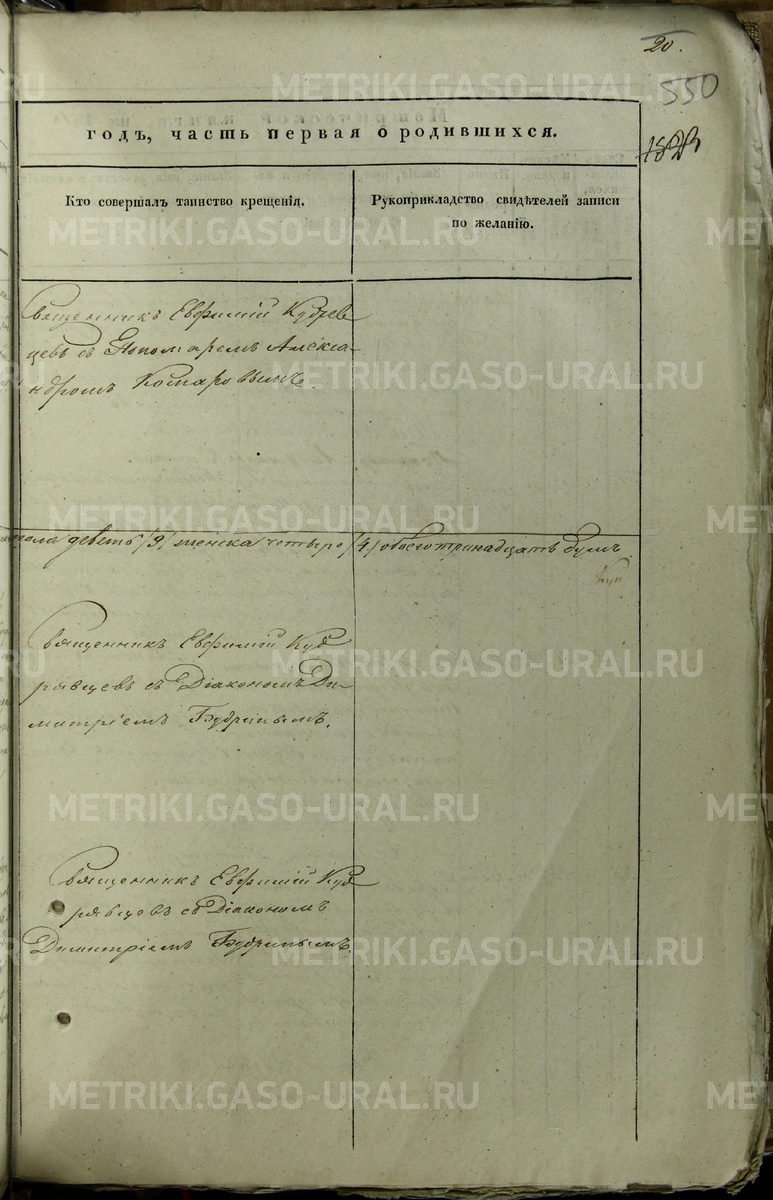 20.
550
годъ, часть первая о родившихся.
Кто совершалъ таинство крещенія.
Рукоприкладство свидѣтелей записи
по желанію.
Священникъ Евфимій Кудрев
цевъ съ Пономаремъ Алекса-
ндромъ Комаровымъ.
пола девять /9/ женска четыре /4/ обоего тринадцать душъ
Священникъ Евфимій Куд
рявцевъ съ Діакономъ Ди-
митріемъ Будринымъ.
Священникъ Евфимій Куд
рявцевъ съ Діакономъ
Димитріемъ Будринымъ.
METRIKI.GASO-URAL.RU